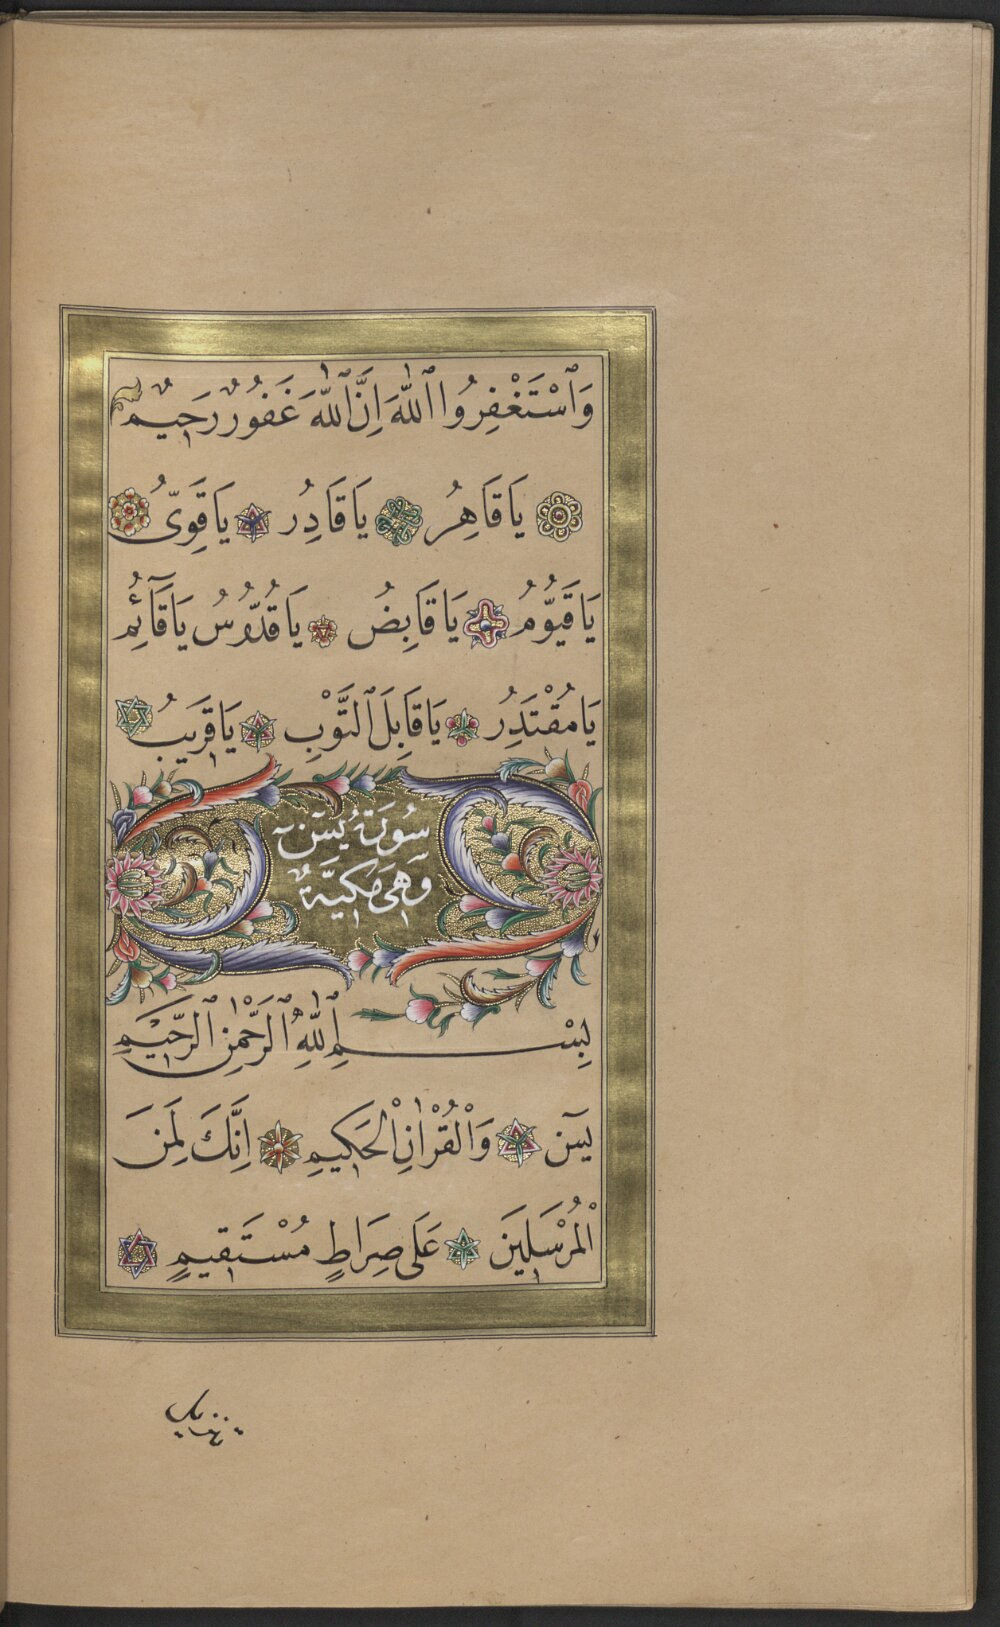 وَٱسْتَغْفِرُوا ٱللّٰهَ اِنَّ ٱللّٰهَ غَفُورٌ رَحِيمٌ
يَاقَاهِرُ يَاقَادِرُ يَاقَوِىُّ
يَاقَيُّومُ يَاقَابِضُ يَاقُدُّوسُ يَاقَآئِمُ
يَامُقْتَدِرُ يَاقَابِلَ ٱلتَّوْبِ يَاقَرِيبُ
سُورَةُ يٓسٓ
وَهِىَ مَكِيَّةٌ
بِسْمِ ٱللّٰهِ ٱلرَّحْمٰنِ ٱلرَّحِيمِ
يٓسٓ وَالْقُرْاٰنِ الْحَكِيمِ اِنَّكَ لَمِنَ
الْمُرْسَلِينَ عَلَى صِرَاطٍ مُسْتَقِيمٍ
تنزيل